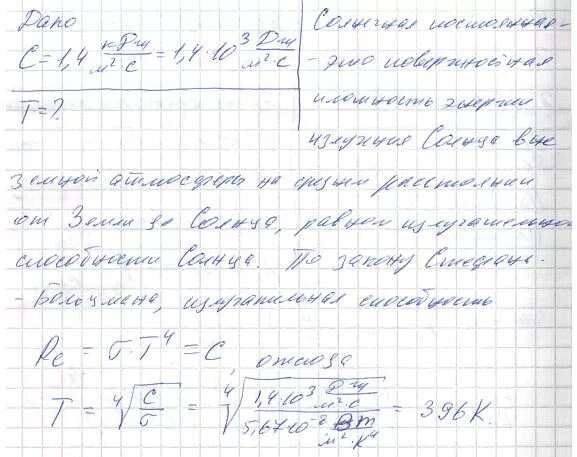 Дано
C = 1,4 кДж/м²·с = 1,4·10³ Дж/м²с
T = ?
Солнечная постоянная -
- это поверхностная
плотность энергии
излучения Солнца вне
земной атмосферы на среднем расстоянии
от Земли до Солнца, равном излучательной
способности Солнца. По закону Стефана-
- Больцмана, излучательная способность
Rе = σ·T⁴ = C, отсюда
T = ⁴√(C/σ) = ⁴√(1,4·10³ Дж/м²с / 5,67·10⁻⁸ Вт/м²·К⁴) = 396 К.